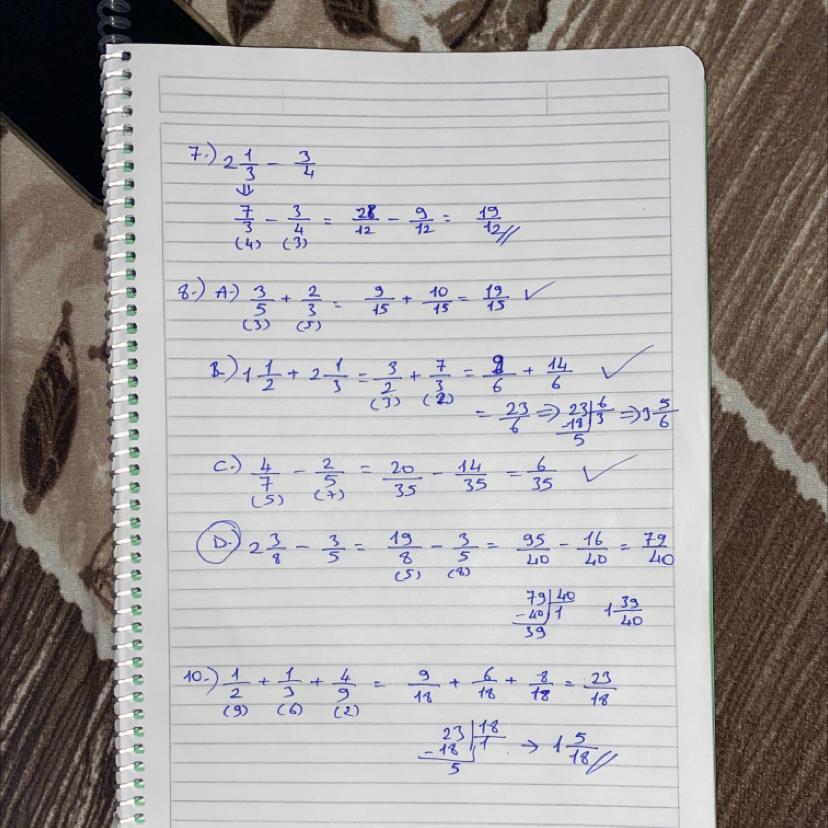 7.) 2 1/3 - 3/4
⇓
7/3 - 3/4 = 28/12 - 9/12 = 19/12 //
(4) (3)
8.) A.) 3/5 + 2/3 = 9/15 + 10/15 = 19/15 ✓
(3) (5)
B.) 1 1/2 + 2 1/3 = 3/2 + 7/3 = 9/6 + 14/6 ✓
(3) (2)
= 23/6 ⇒ 23 | 6 ⇒ 3 5/6
-18 | 3
5
C.) 4/7 - 2/5 = 20/35 - 14/35 = 6/35 ✓
(5) (7)
D. 2 3/8 - 3/5 = 19/8 - 3/5 = 95/40 - 16/40 = 79/40
(5) (8)
79 | 40 1 39/40
-40 | 1
39
10.) 1/2 + 1/3 + 4/9 = 9/18 + 6/18 + 8/18 = 23/18
(9) (6) (2)
23 | 18 → 1 5/18 //
-18 | 1
5